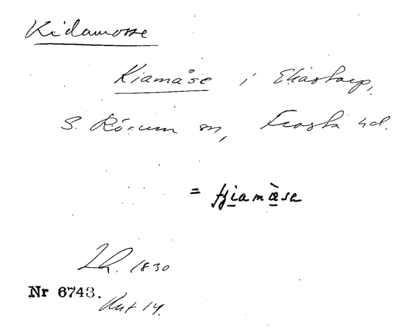 Kidamosse
Kiamåse i Eliastorp,
S. Rörum sn, Frosta hd.
= tjiamàse
Lh. 1830
Nr 6743.
Akt 14.